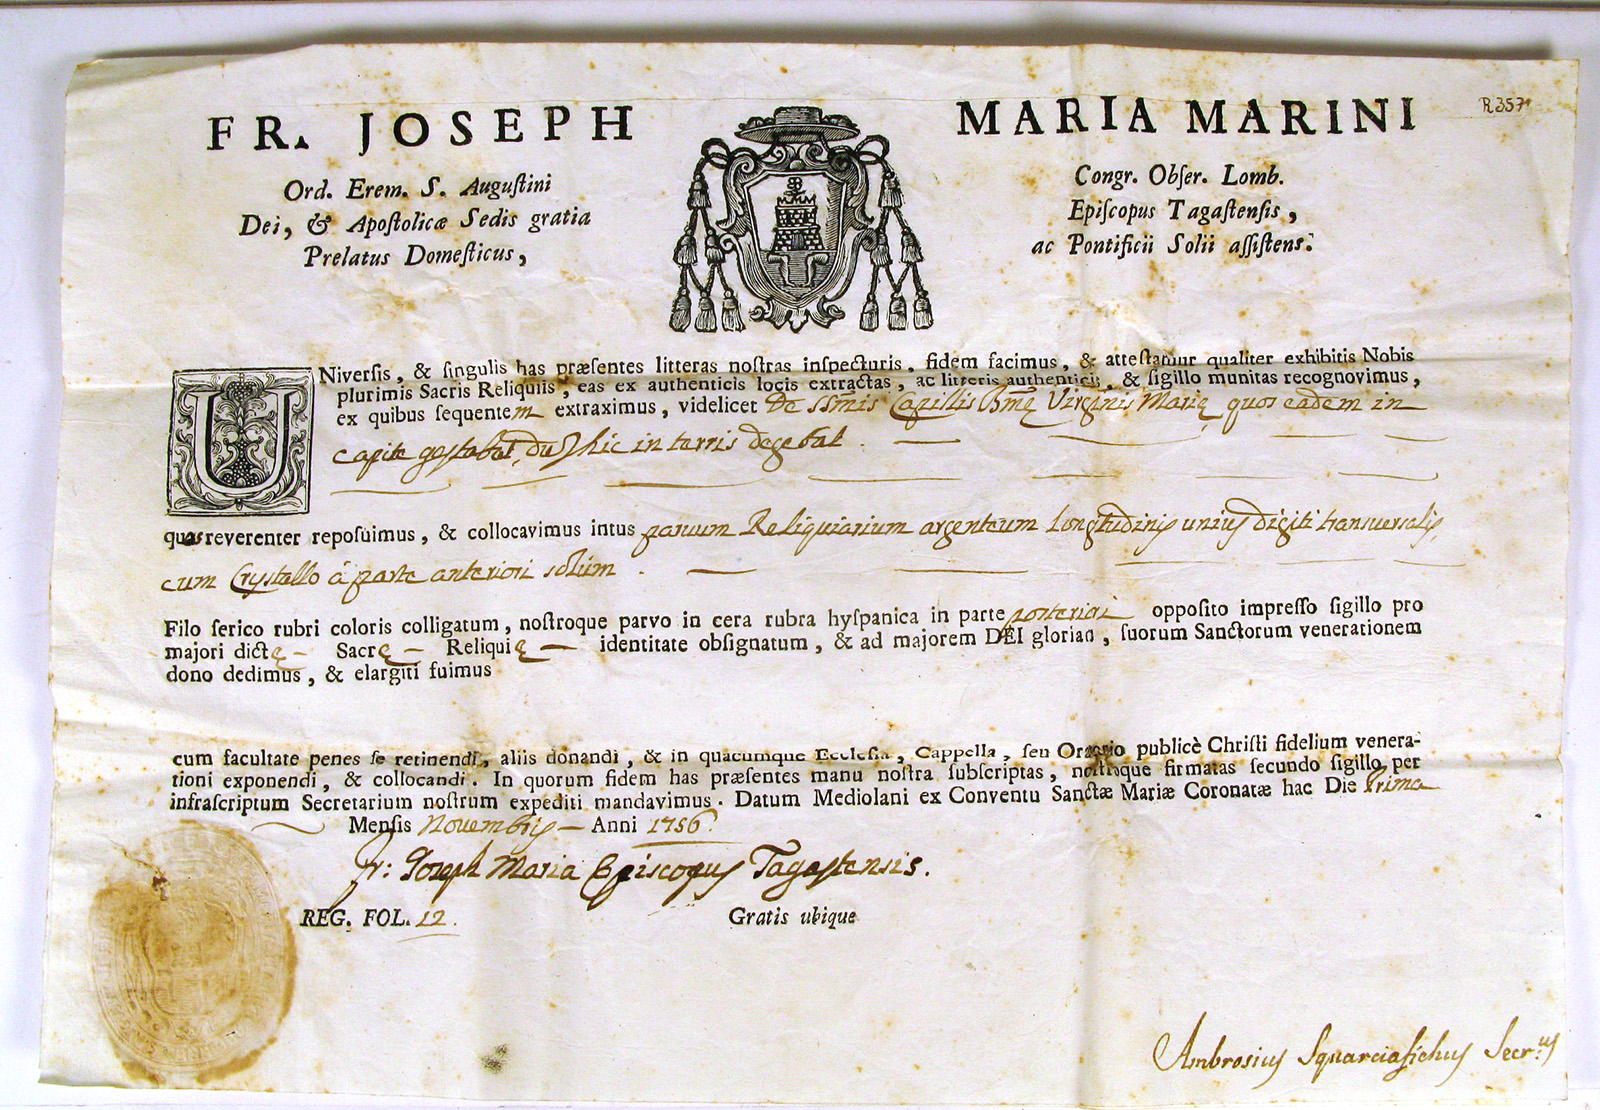 FR. JOSEPH MARIA MARINI
R357
Ord. Erem. S. Augustini
Dei, & Apostolicæ Sedis gratia
Prelatus Domesticus,
Congr. Obser. Lomb.
Episcopus Tagastensis,
ac Pontificii Solii assistens.
UNiversis, & singulis has præsentes litteras nostras inspecturis, fidem facimus, & attestamur qualiter exhibitis Nobis
plurimis Sacris Reliquiis, eas ex authenticis locis extractas, ac litteris authenticis, & sigillo munitas recognovimus,
ex quibus sequentem extraximus, videlicet De SSmis Capillis Bmę Virginis Marię quos eadem in
capite gestabat, du hic in terris degebat.
quas reverenter reposuimus, & collocavimus intus parvum Reliquiarium argenteum longitudinis unius digiti transversalis,
cum Crystallo à parte anteriori solùm.
Filo serico rubri coloris colligatum, nostroque parvo in cera rubra hyspanica in parte posteriori opposito impresso sigillo pro
majori dictę - Sacrę - Reliquię - identitate obsignatum, & ad majorem DEI gloriam, suorum Sanctorum venerationem
dono dedimus, & elargiti fuimus
cum facultate penes se retinendi, aliis donandi, & in quacumque Ecclesia, Cappella, seu Oratorio publicè Christi fidelium venera-
tioni exponendi, & collocandi. In quorum fidem has præsentes manu nostra subscriptas, nostroque firmatas secundo sigillo per
infrascriptum Secretarium nostrum expediti mandavimus. Datum Mediolani ex Conventu Sanctæ Mariæ Coronatæ hac Die Prima
Mensis Novembris - Anni 1756.
Fr: Joseph Maria Episcopus Tagastensis.
REG. FOL. 12. Gratis ubique
Ambrosius Squarciafichus Secr:us